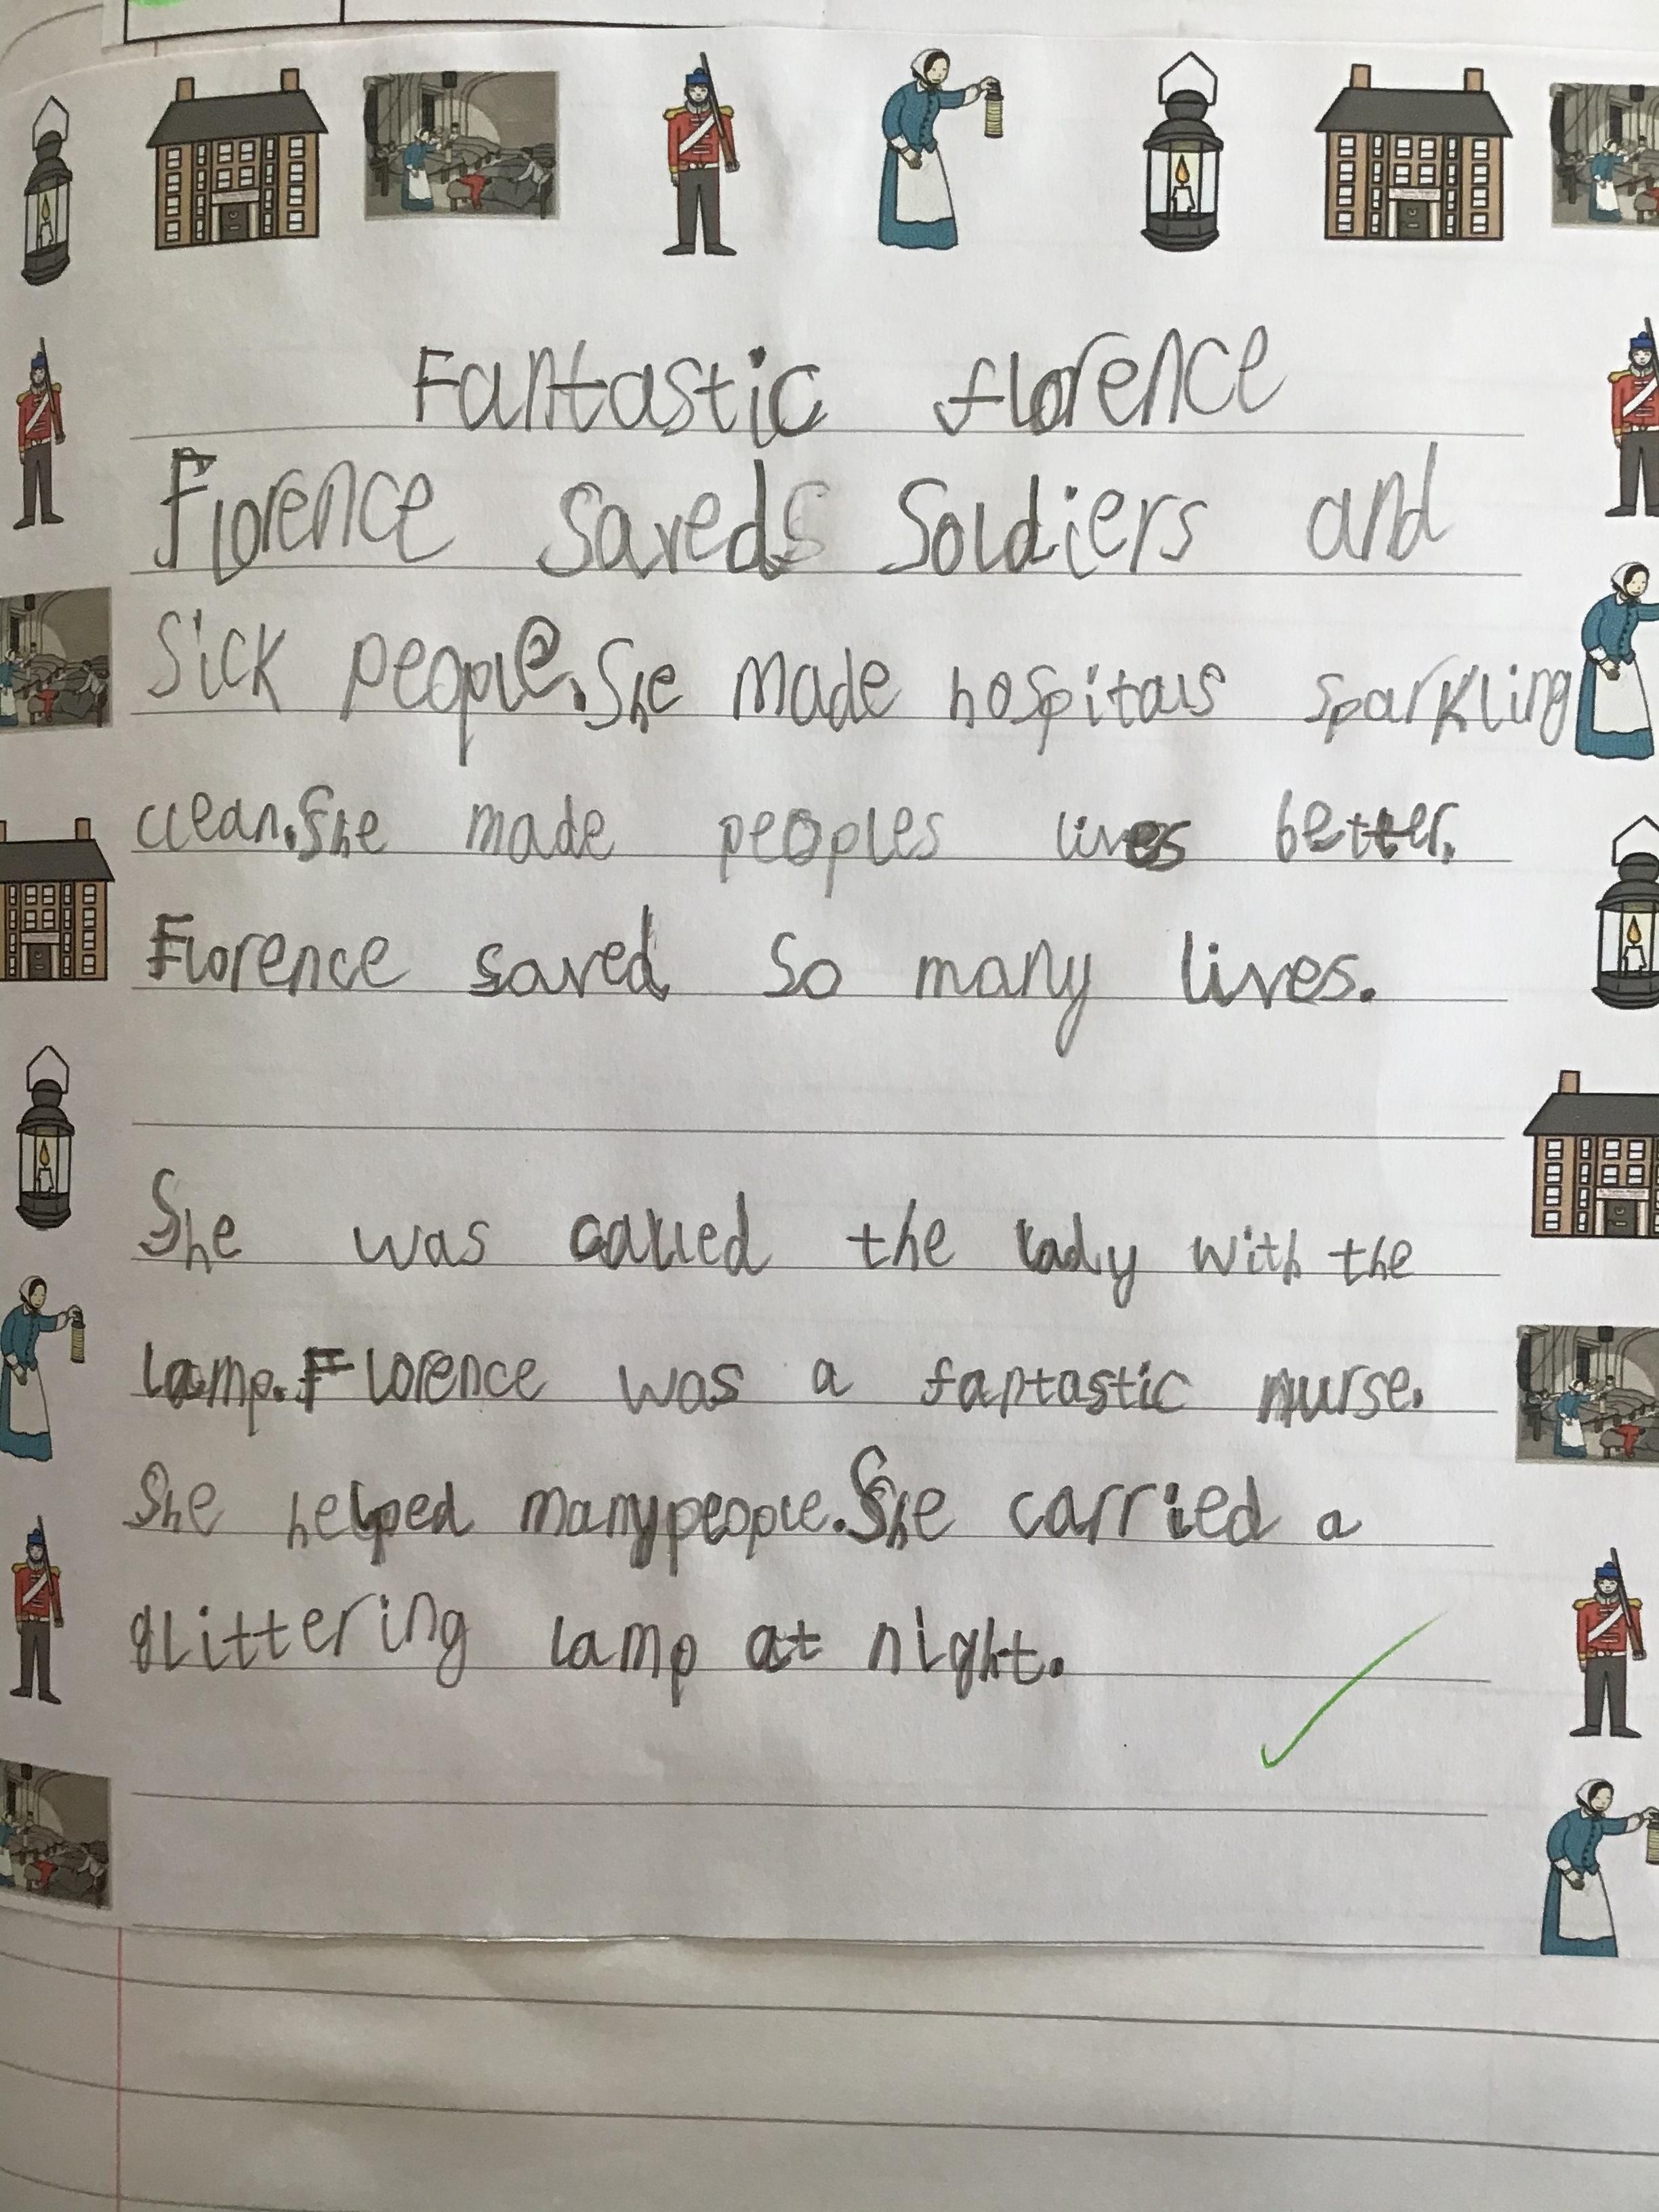 Fantastic florence
Florence saved Soldiers and
Sick people. She made hospitals sparkling
clean. She made peoples lives better.
Florence saved So many lives.
She was called the lady with the
lamp. Florence was a fantastic nurse.
She helped many people. She carried a
glittering lamp at night.